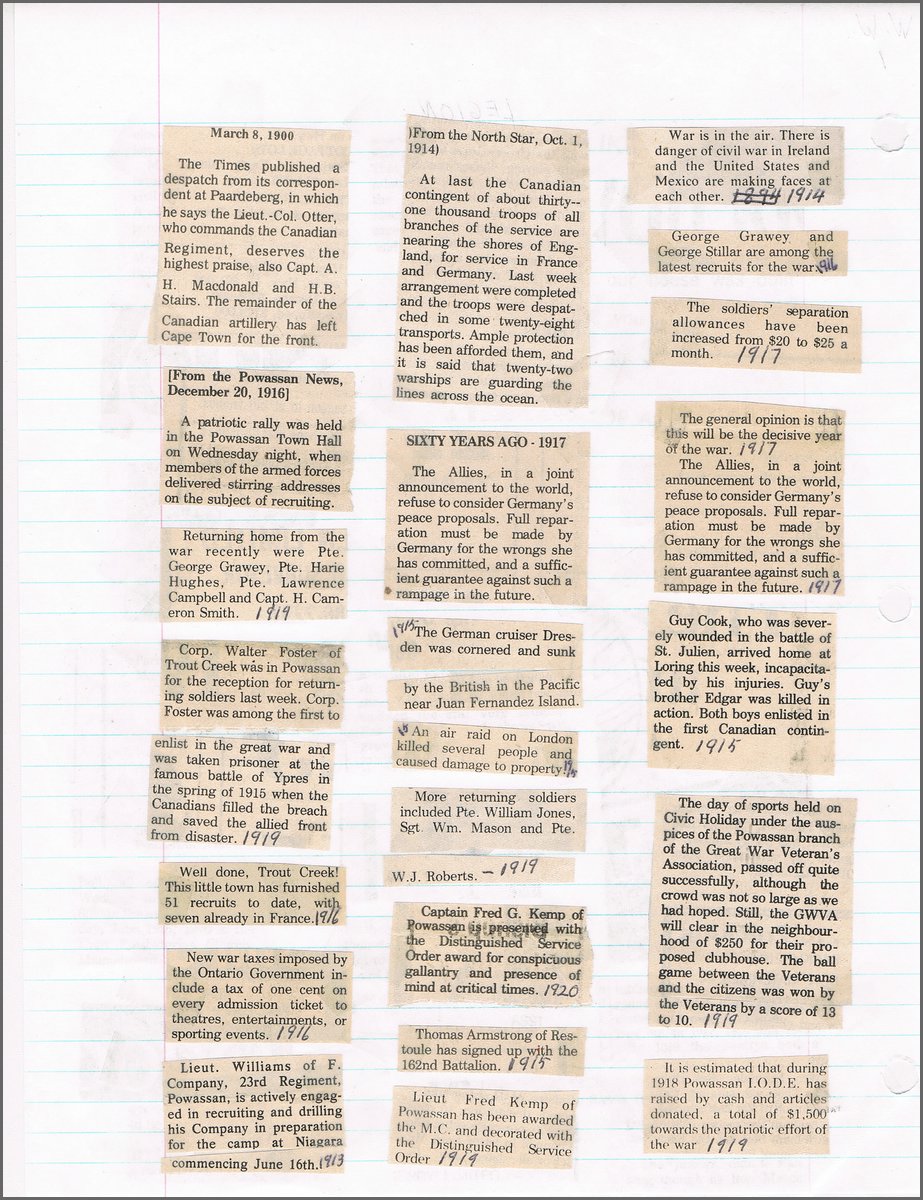 W.W
1
LEGION
March 8, 1900
The Times published a
despatch from its correspon-
dent at Paardeberg, in which
he says the Lieut.-Col. Otter,
who commands the Canadian
Regiment, deserves the
highest praise, also Capt. A.
H. Macdonald and H.B.
Stairs. The remainder of the
Canadian artillery has left
Cape Town for the front.
[From the Powassan News,
December 20, 1916]
A patriotic rally was held
in the Powassan Town Hall
on Wednesday night, when
members of the armed forces
delivered stirring addresses
on the subject of recruiting.
Returning home from the
war recently were Pte.
George Grawey, Pte. Harie
Hughes, Pte. Lawrence
Campbell and Capt. H. Cam-
eron Smith. 1919
Corp. Walter Foster of
Trout Creek was in Powassan
for the reception for return-
ing soldiers last week. Corp.
Foster was among the first to
enlist in the great war and
was taken prisoner at the
famous battle of Ypres in
the spring of 1915 when the
Canadians filled the breach
and saved the allied front
from disaster. 1919
Well done, Trout Creek!
This little town has furnished
51 recruits to date, with
seven already in France. 1916
New war taxes imposed by
the Ontario Government in-
clude a tax of one cent on
every admission ticket to
theatres, entertainments, or
sporting events. 1916
Lieut. Williams of F.
Company, 23rd Regiment,
Powassan, is actively engag-
ed in recruiting and drilling
his Company in preparation
for the camp at Niagara
commencing June 16th. 1913
)From the North Star, Oct. 1,
1914)
At last the Canadian
contingent of about thirty--
one thousand troops of all
branches of the service are
nearing the shores of Eng-
land, for service in France
and Germany. Last week
arrangement were completed
and the troops were despat-
ched in some twenty-eight
transports. Ample protection
has been afforded them, and
it is said that twenty-two
warships are guarding the
lines across the ocean.
SIXTY YEARS AGO - 1917
The Allies, in a joint
announcement to the world,
refuse to consider Germany's
peace proposals. Full repar-
ation must be made by
Germany for the wrongs she
has committed, and a suffic-
ient guarantee against such a
rampage in the future.
1915 The German cruiser Dres-
den was cornered and sunk
by the British in the Pacific
near Juan Fernandez Island.
An air raid on London
killed several people and
caused damage to property! 1915
More returning soldiers
included Pte. William Jones,
Sgt. Wm. Mason and Pte.
W.J. Roberts. - 1919
Captain Fred G. Kemp of
Powassan is presented with
the Distinguished Service
Order award for conspicuous
gallantry and presence of
mind at critical times. 1920
Thomas Armstrong of Res-
toule has signed up with the
162nd Battalion. 1915
Lieut Fred Kemp of
Powassan has been awarded
the M.C. and decorated with
the Distinguished Service
Order 1919
War is in the air. There is
danger of civil war in Ireland
and the United States and
Mexico are making faces at
each other. 1894 1914
George Grawey and
George Stillar are among the
latest recruits for the war. 1916
The soldiers' separation
allowances have been
increased from $20 to $25 a
month. 1917
The general opinion is that
this will be the decisive year
of the war. 1917
The Allies, in a joint
announcement to the world,
refuse to consider Germany's
peace proposals. Full repar-
ation must be made by
Germany for the wrongs she
has committed, and a suffic-
ient guarantee against such a
rampage in the future. 1917
Guy Cook, who was sever-
ely wounded in the battle of
St. Julien, arrived home at
Loring this week, incapacita-
ted by his injuries. Guy's
brother Edgar was killed in
action. Both boys enlisted in
the first Canadian contin-
gent. 1915
The day of sports held on
Civic Holiday under the aus-
pices of the Powassan branch
of the Great War Veteran's
Association, passed off quite
successfully, although the
crowd was not so large as we
had hoped. Still, the GWVA
will clear in the neighbour-
hood of $250 for their pro-
posed clubhouse. The ball
game between the Veterans
and the citizens was won by
the Veterans by a score of 13
to 10. 1919
It is estimated that during
1918 Powassan I.O.D.E. has
raised by cash and articles
donated, a total of $1,500
towards the patriotic effort of
the war 1919